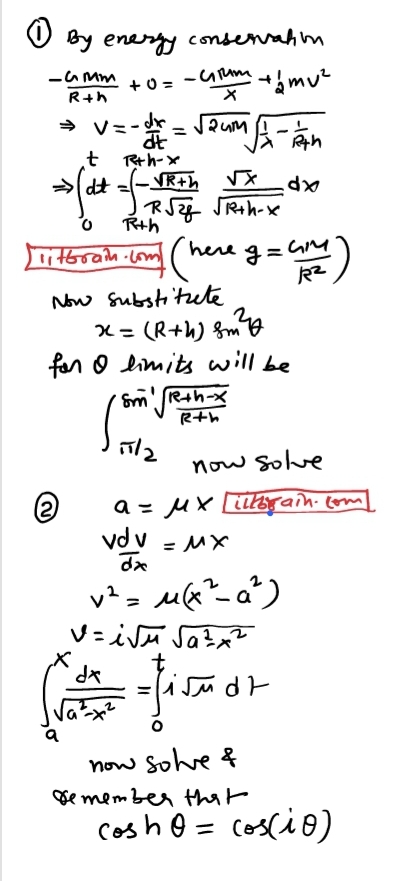 ① By energy conservation
-GMm/(R+h) + 0 = -GMm/x + 1/2 mv²
⇒ v = -dx/dt = √2GM √(1/x - 1/(R+h))
⇒ ∫₀ᵗ dt = ∫_{R+h}^{R+h-x} -√(R+h)/(R√2g) √x/√(R+h-x) dx
iitbrain.com (here g = GM/R²)
Now substitute
x = (R+h) sin²θ
for θ limits will be
∫_{π/2}^{sin⁻¹√((R+h-x)/(R+h))}
now solve
② a = μx iitbrain.com
vdv/dx = μx
v² = μ(x² - a²)
v = i√μ √(a²-x²)
∫ₐˣ dx/√(a²-x²) = ∫₀ᵗ i√μ dt
now solve &
remember that
cosh θ = cos(iθ)